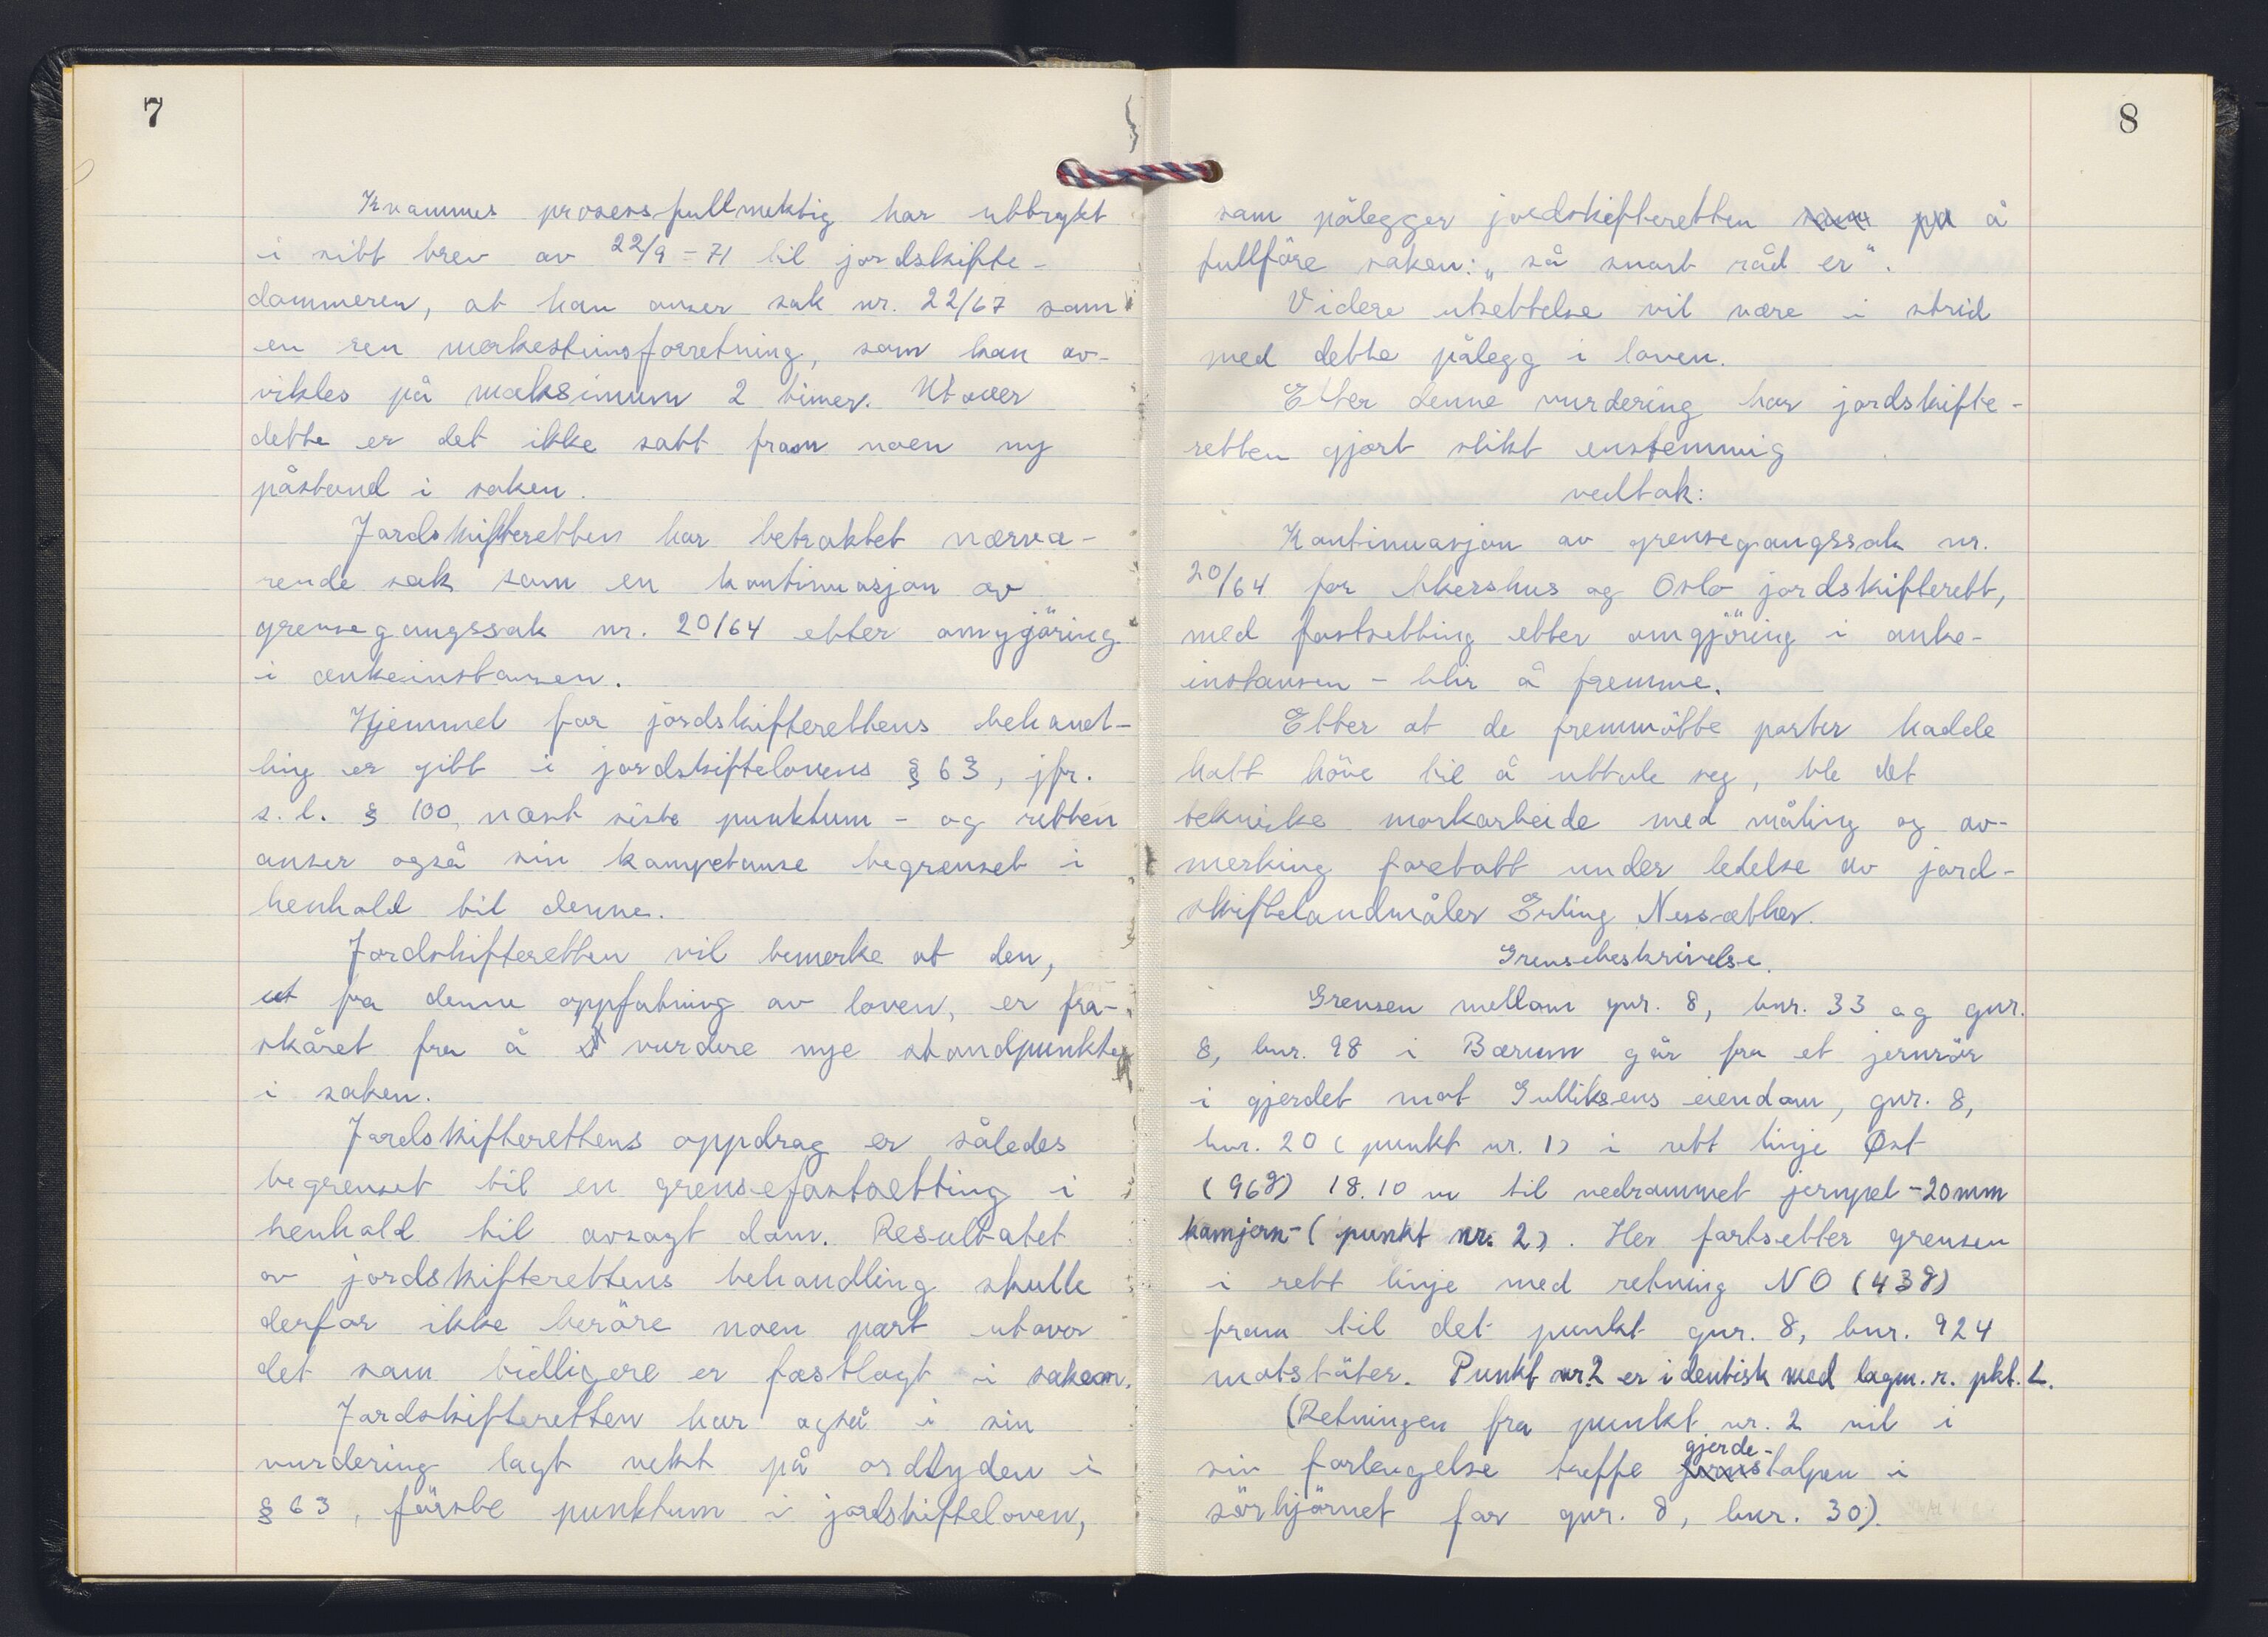 7
Kvammes prosessfullmektig har uttrykt
i sitt brev av 22/9 - 71 til jordskifte-
dommeren, at han anser sak nr. 22/67 som
en ren merkesteinsforretning, som kan av-
vikles på maksimum 2 timer. Utover
dette er det ikke satt fram noen ny
påstand i saken.
Jordskifteretten har betraktet nærvæ-
rende sak som en kontinuasjon av
grensegangssak nr. 20/64 etter omgjöring
i ankeinstansen.
Hjemmel for jordskifterettens behand-
ling er gitt i jordskiftelovens § 63, jfr.
s.l. § 100, næst siste punktum - og retten
anser også sin kompetanse begrenset i
henhold til denne.
Jordskifteretten vil bemerke at den,
ut fra denne oppfatning av loven, er fra-
skåret fra å vurdere nye standpunkter
i saken.
Jordskifterettens oppdrag er således
begrenset til en grensefastsetting i
henhold til avsagt dom. Resultatet
av jordskifterettens behandling skulle
derfor ikke beröre noen part utover
det som tidligere er fastlagt i saken.
Jordskifteretten har også i sin
vurdering lagt vekt på ordlyden i
§ 63, förste punktum i jordskifteloven,
8
som pålegger jordskifteretten som på å
fullföre saken: „så snart råd er".
Videre utsettelse vil være i strid
med dette pålegg i loven.
Etter denne vurdering har jordskifte-
retten gjort slikt enstemmig
vedtak:
Kontinuasjon av grensegangssak nr.
20/64 for Akershus og Oslo jordskifterett,
med fastsetting etter omgjöring i anke-
instansen - blir å fremme.
Etter at de fremmötte parter hadde
hatt höve til å uttale seg, ble det
tekniske markarbeide med måling og av-
merking foretatt under ledelse av jord-
skiftelandmåler Erling Nessæther.
Grensebeskrivelse.
Grensen mellom gnr. 8, bnr. 33 og gnr.
8, bnr. 98 i Bærum går fra et jernrör
i gjerdet mot Gulliksens eiendom, gnr. 8,
bnr. 20 (punkt nr. 1) i rett linje Øst
(96g) 18.10 m til nedrammet jernpel -20mm
kamjern- (punkt nr. 2). Her fortsetter grensen
i rett linje med retning NO (43g)
fram til det punkt gnr. 8, bnr. 924
motstöter. Punkt nr. 2 er identisk med lagm. r. pkt. L.
(Retningen fra punkt nr. 2 vil i
gjerde-
sin forlengelse treffe stolpen i
sörhjörnet for gnr. 8, bnr. 30).